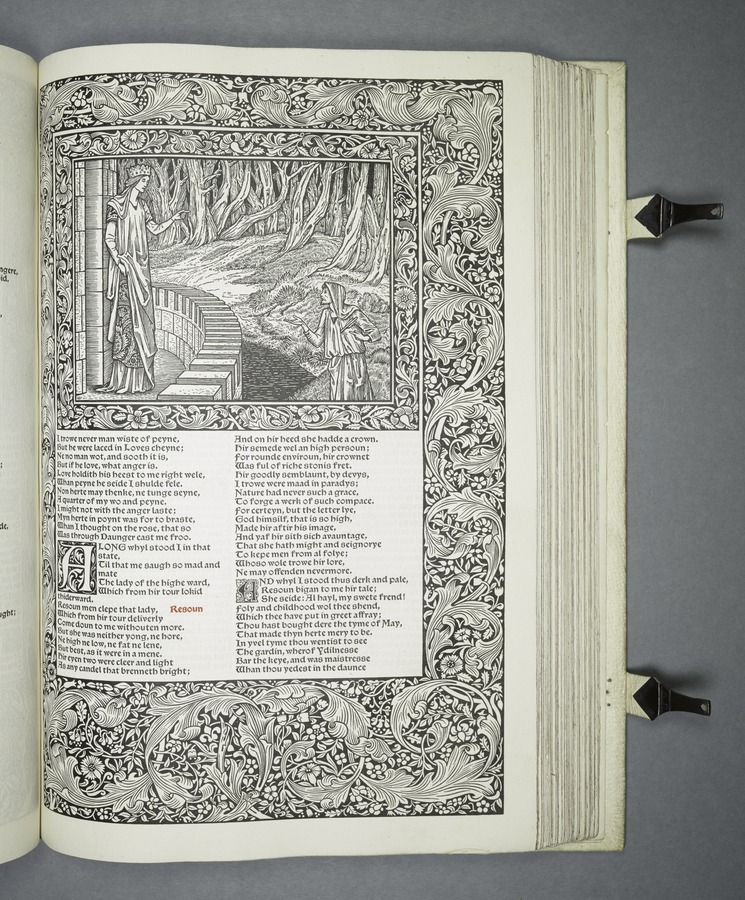 ngere,
id,
;
de,
ught;
I trowe never man wiste of peyne,
But he were laced in Loves cheyne;
Ne no man wot, and sooth it is,
But if he love, what anger is.
Love holdith his heest to me right wele,
Whan peyne he seide I shulde fele.
Non herte may thenke, ne tunge seyne,
A quarter of my wo and peyne.
I might not with the anger laste;
Myn herte in poynt was for to braste,
Whan I thought on the rose, that so
Was through Daunger cast me froo.
ALONG whyl stood I in that
state,
Til that me saugh so mad and
mate
The lady of the highe ward,
Which from hir tour lokid
thiderward.
Resoun men clepe that lady, Resoun
Which from hir tour deliverly
Come doun to me withouten more.
But she was neither yong, ne hore,
Ne high ne low, ne fat ne lene,
But best, as it were in a mene.
Hir eyen two were cleer and light
As any candel that brenneth bright;
And on hir heed she hadde a crown.
Hir semede wel an high persoun;
For rounde enviroun, hir crownet
Was ful of riche stonis fret.
Hir goodly semblaunt, by devys,
I trowe were maad in paradys;
Nature had never such a grace,
To forge a werk of such compace.
For certeyn, but the letter lye,
God himsilf, that is so high,
Made hir aftir his image,
And yaf hir sith sich avauntage,
That she hath might and seignorye
To kepe men from al folye;
Whoso wole trowe hir lore,
Ne may offenden nevermore.
AND whyl I stood thus derk and pale,
Resoun bigan to me hir tale;
She seide: Al hayl, my swete frend!
Foly and childhood wol thee shend,
Which thee have put in greet affray;
Thou hast bought dere the tyme of May,
That made thyn herte mery to be.
In yvel tyme thou wentist to see
The gardin, wherof Ydilnesse
Bar the keye, and was maistresse
Whan thou yedest in the daunce